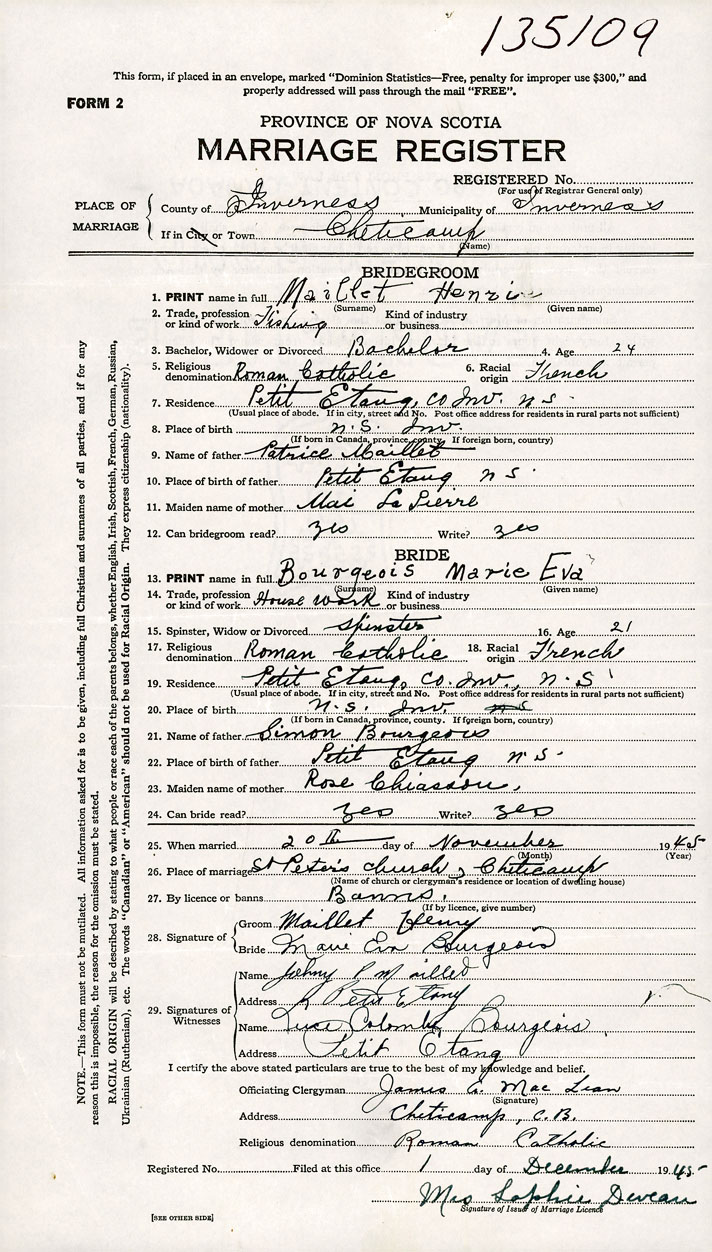 135109
This form, if placed in an envelope, marked "Dominion Statistics—Free, penalty for improper use $300," and
properly addressed will pass through the mail "FREE".
FORM 2
PROVINCE OF NOVA SCOTIA
MARRIAGE REGISTER
REGISTERED No.
(For use of Registrar General only)
PLACE OF MARRIAGE
County of Inverness Municipality of Inverness
If in City or Town Cheticamp
(Name)
BRIDEGROOM
1. PRINT name in full Maillet Henri
(Surname) (Given name)
2. Trade, profession or kind of work Fishing Kind of industry or business
3. Bachelor, Widower or Divorced Bachelor 4. Age 24
5. Religious denomination Roman Catholic 6. Racial origin French
7. Residence Petit Etang, Co Inv. N S.
(Usual place of abode. If in city, street and No. Post office address for residents in rural parts not sufficient)
8. Place of birth N.S. Inv.
(If born in Canada, province, county. If foreign born, country)
9. Name of father Patrice Maillet
10. Place of birth of father Petit Etang N S.
11. Maiden name of mother Mai La Pierre
12. Can bridegroom read? yes Write? yes
BRIDE
13. PRINT name in full Bourgeois Marie Eva
(Surname) (Given name)
14. Trade, profession or kind of work House work Kind of industry or business
15. Spinster, Widow or Divorced spinster 16. Age 21
17. Religious denomination Roman Catholic 18. Racial origin French
19. Residence Petit Etang, Co. Inv., N.S
(Usual place of abode. If in city, street and No. Post office address for residents in rural parts not sufficient)
20. Place of birth N.S. Inv.
(If born in Canada, province, county. If foreign born, country)
21. Name of father Simon Bourgeois
22. Place of birth of father Petit Etang N S.
23. Maiden name of mother Rose Chiasson,
24. Can bride read? yes Write? yes
25. When married 20th day of November 1945
(Month) (Year)
26. Place of marriage St Peter's church, Cheticamp
(Name of church or clergyman's residence or location of dwelling house)
27. By licence or banns Banns.
(If by licence, give number)
28. Signature of
Groom Maillet Henry
Bride Marie Eva Bourgeois
29. Signatures of Witnesses
Name Johny P Maillet
Address Petit Etang
Name Luce Colombe Bourgeois
Address Petit Etang
I certify the above stated particulars are true to the best of my knowledge and belief.
Officiating Clergyman James A. Mac Lean
(Signature)
Address Cheticamp, C.B.
Religious denomination Roman Catholic
Registered No. Filed at this office 1 day of December 1945
Mrs Sophie Deveau
Signature of Issuer of Marriage Licence
[SEE OTHER SIDE]
NOTE.—This form must not be mutilated. All information asked for is to be given, including full Christian and surnames of all parties, and if for any
reason this is impossible, the reason for the omission must be stated.
RACIAL ORIGIN will be described by stating to what people or race each of the parents belongs, whether English, Irish, Scottish, French, German, Russian,
Ukrainian (Ruthenian), etc. The words "Canadian" or "American" should not be used for Racial Origin. They express citizenship (nationality).